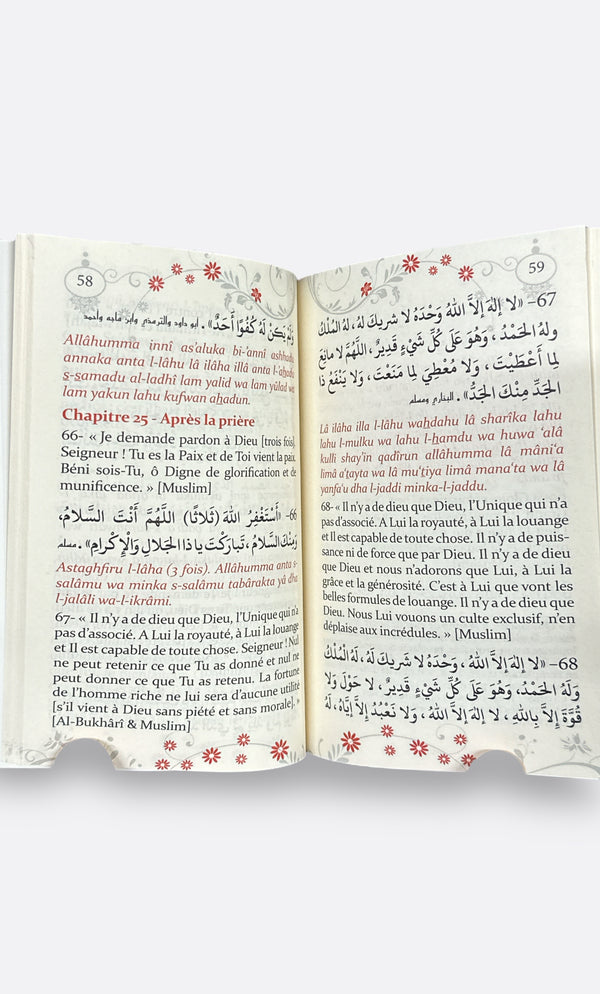 58
وَلَمْ يَكُنْ لَهُ كُفُوًا أَحَدٌ» . أبو داود والترمذي وابن ماجه وأحمد
Allâhumma innî as'aluka bi-'annî ashhadu
annaka anta l-lâhu lâ ilâha illâ anta l-'ahadu
s-samadu al-ladhî lam yalid wa lam yûlad wa
lam yakun lahu kufwan ahadun.
Chapitre 25 - Après la prière
66- « Je demande pardon à Dieu [trois fois].
Seigneur ! Tu es la Paix et de Toi vient la paix.
Béni sois-Tu, ô Digne de glorification et de
munificence. » [Muslim]
66– «أَسْتَغْفِرُ اللهَ (ثَلاثًا) اللَّهُمَّ أَنْتَ السَّلامُ،
وَمِنْكَ السَّلامُ، تَبارَكْتَ يا ذا الجَلالِ وَالإِكْرامِ» . مسلم
Astaghfiru l-lâha (3 fois). Allâhumma anta s-
salâmu wa minka s-salâmu tabârakta yâ dha
l-jalâli wa-l-ikrâmi.
67- « Il n'y a de dieu que Dieu, l'Unique qui n'a
pas d'associé. A Lui la royauté, à Lui la louange
et Il est capable de toute chose. Seigneur ! Nul
ne peut retenir ce que Tu as donné et nul ne
peut donner ce que Tu as retenu. La fortune
de l'homme riche ne lui sera d'aucune utilité
[s'il vient à Dieu sans piété et sans morale]. »
[Al-Bukhârî & Muslim]
59
67– «لا إلهَ إلاَّ اللهُ وَحْدَهُ لا شَرِيكَ لَهُ، لَهُ المُلْكُ
ولهُ الحَمْدُ، وَهُوَ عَلَى كُلِّ شَيْءٍ قَدِيرٌ، اللَّهُمَّ لا مانِعَ
لِما أَعْطَيْتَ، وَلا مُعْطِيَ لِما مَنَعْتَ، وَلا يَنْفَعُ ذا
الجَدِّ مِنْكَ الجَدُّ» . البخاري ومسلم
Lâ ilâha illa l-lâhu wahdahu lâ sharîka lahu
lahu l-mulku wa lahu l-hamdu wa huwa 'alâ
kulli shay'in qadîrun allâhumma lâ mâni'a
limâ a'tayta wa lâ mu'tiya limâ mana'ta wa lâ
yanfa'u dha l-jaddi minka-l-jaddu.
68- « Il n'y a de dieu que Dieu, l'Unique qui n'a
pas d'associé. A Lui la royauté, à Lui la louange
et Il est capable de toute chose. Il n'y a de puis-
sance ni de force que par Dieu. Il n'y a de dieu
que Dieu et nous n'adorons que Lui, à Lui la
grâce et la générosité. C'est à Lui que vont les
belles formules de louange. Il n'y a de dieu que
Dieu. Nous Lui vouons un culte exclusif, n'en
déplaise aux incrédules. » [Muslim]
68– «لا إلهَ إلاَّ اللهُ، وَحْدَهُ لا شَرِيكَ لَهُ، لَهُ المُلْكُ
وَلَهُ الحَمْدُ، وَهُوَ عَلَى كُلِّ شَيْءٍ قَدِيرٌ ، لا حَوْلَ وَلا
قُوَّةَ إلاَّ بِاللهِ ، لا إلهَ إلاَّ اللهُ ، وَلا نَعْبُدُ إلاَّ إيَّاهُ، لَهُ